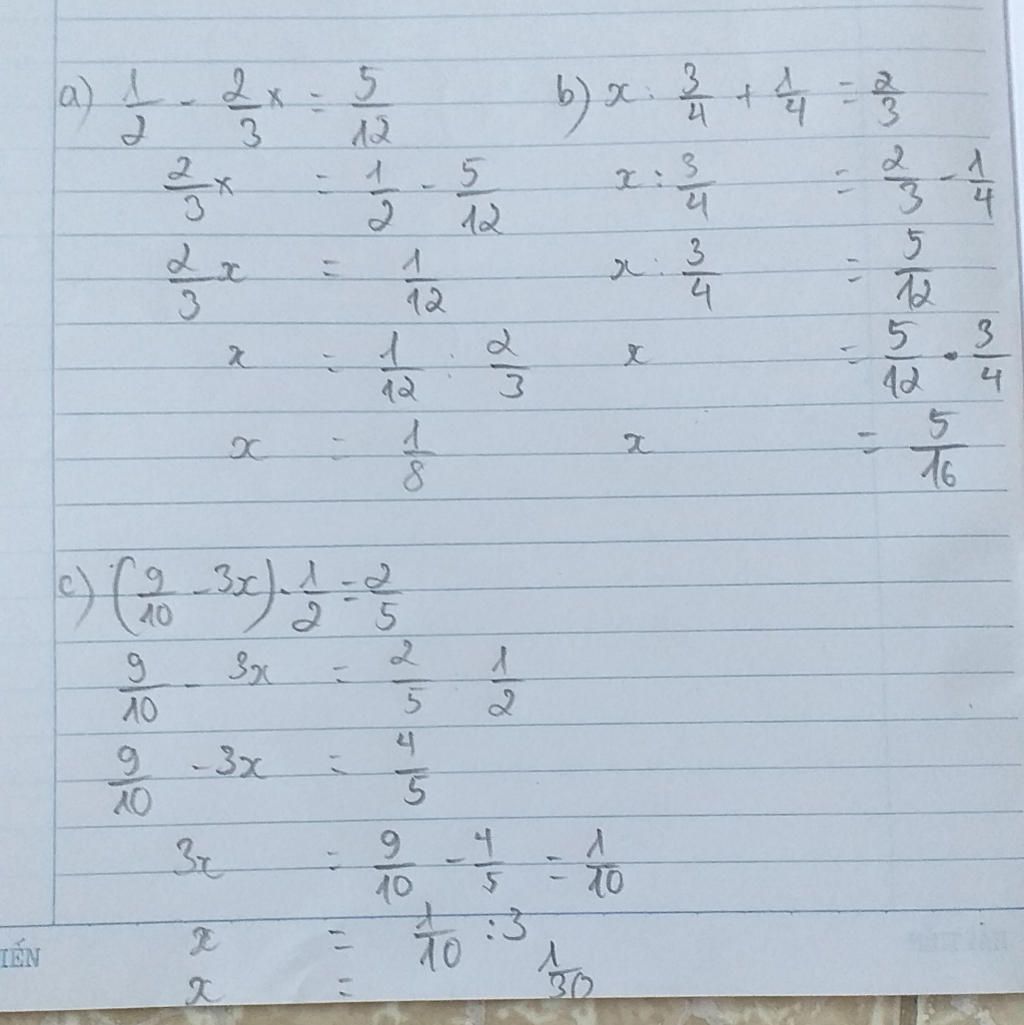 a) 1/2 - 2/3 x = 5/12
2/3 x = 1/2 - 5/12
2/3 x = 1/12
x = 1/12 : 2/3
x = 1/8
b) x : 3/4 + 1/4 = 2/3
x : 3/4 = 2/3 - 1/4
x : 3/4 = 5/12
x = 5/12 . 3/4
x = 5/16
c) (9/10 - 3x) . 1/2 = 2/5
9/10 - 3x = 2/5 1/2
9/10 - 3x = 4/5
3x = 9/10 - 4/5 = 1/10
x = 1/10 : 3
x = 1/30
IẾN